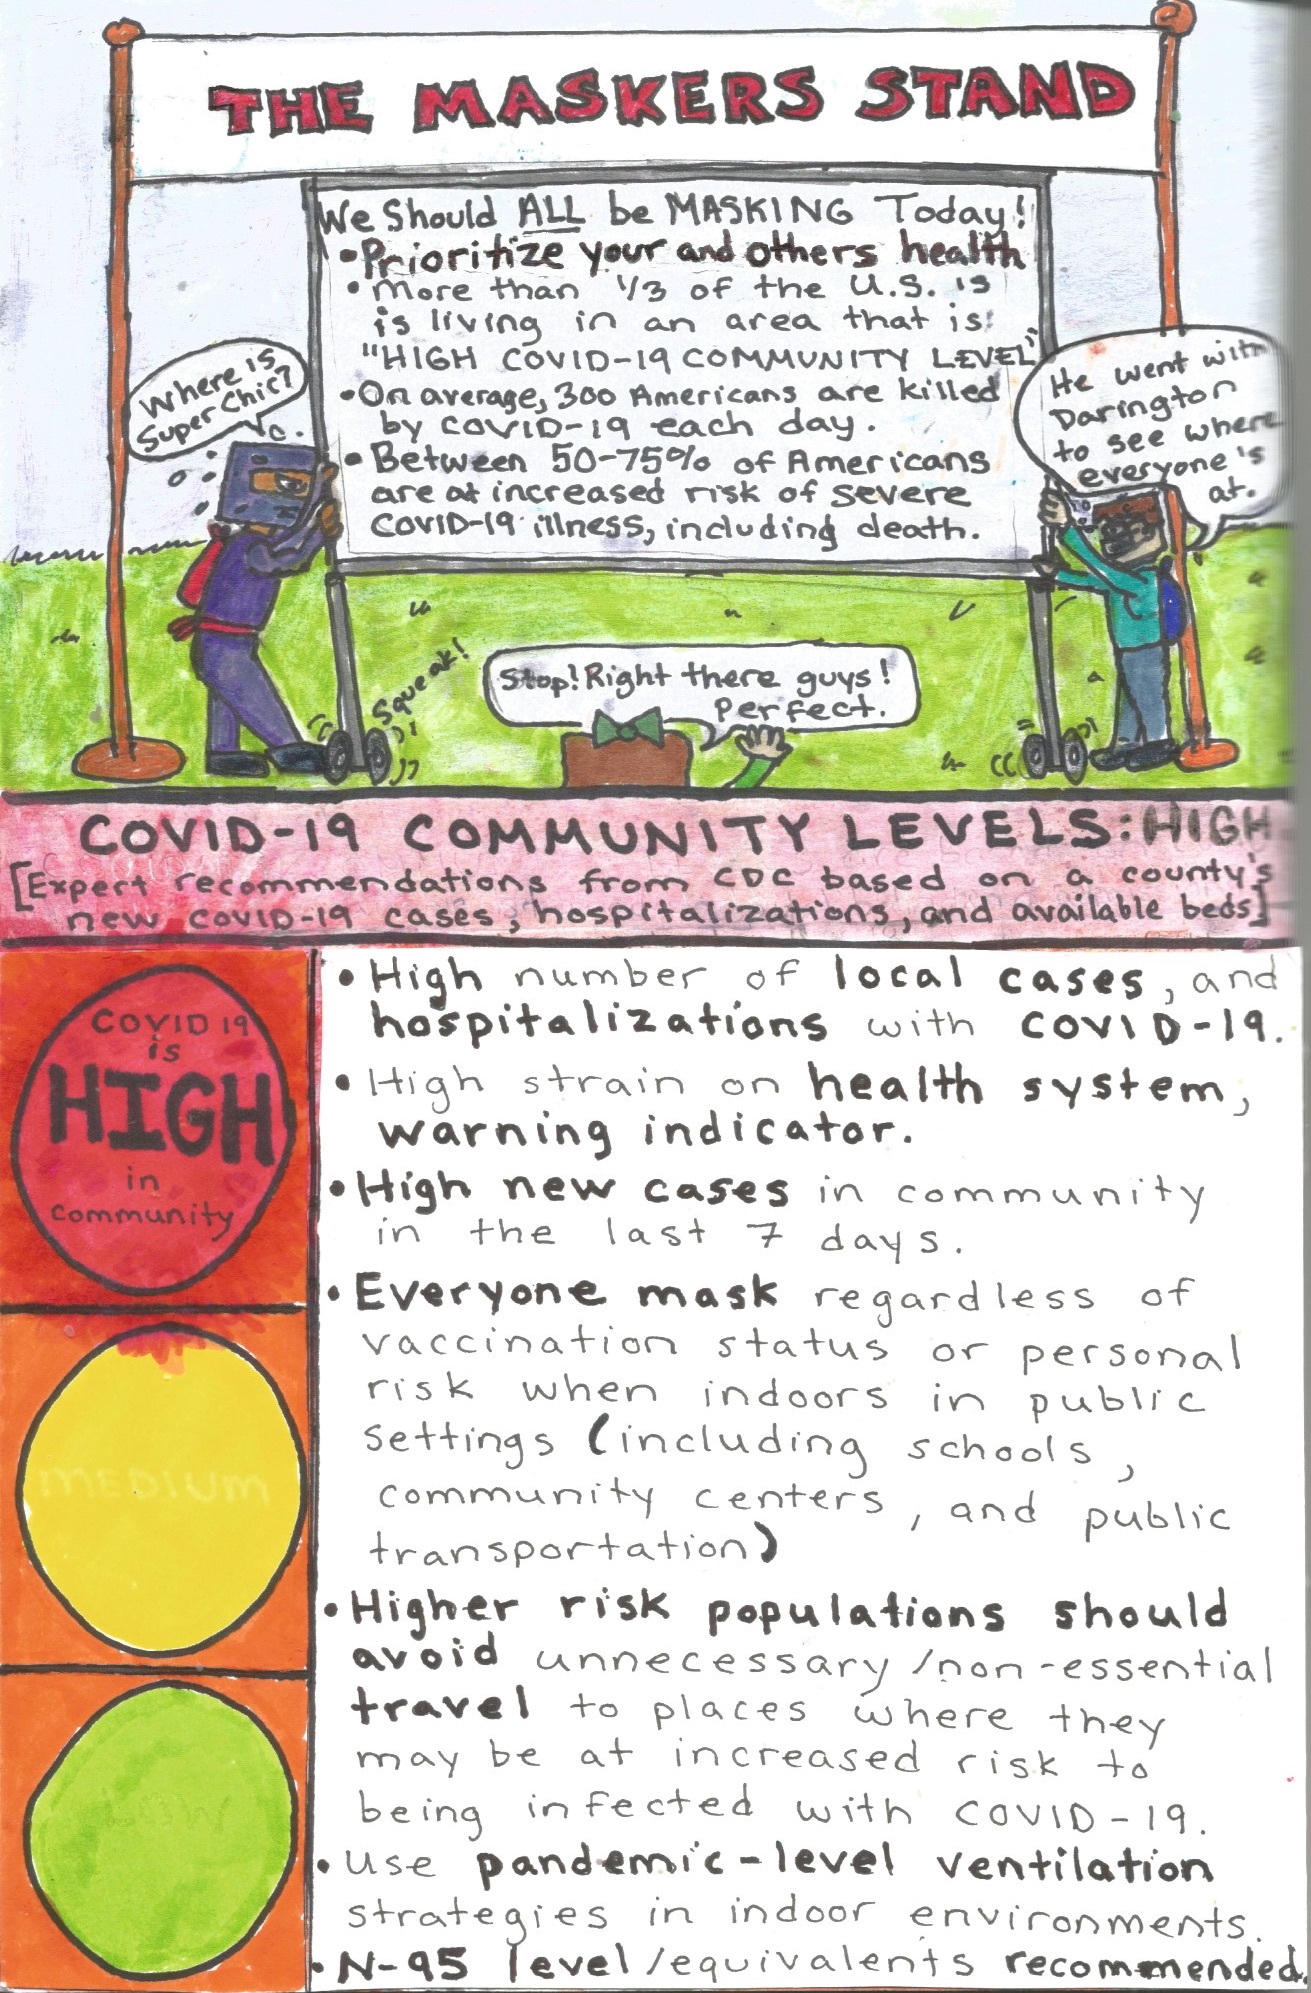 THE MASKERS STAND
We Should ALL be MASKING Today!
•Prioritize your and others health
•More than 1/3 of the U.S. is
is living in an area that is:
"HIGH COVID-19 COMMUNITY LEVEL"
•On average, 300 Americans are killed
by COVID-19 each day.
•Between 50-75% of Americans
are at increased risk of severe
COVID-19 illness, including death.
Where is
Super Chic?
He went with
Darington
to see where
everyone's
at.
Squeak!
Stop! Right there guys!
Perfect.
COVID-19 COMMUNITY LEVELS: HIGH
[Expert recommendations from CDC based on a county's
new COVID-19 cases, hospitalizations, and available beds]
COVID 19
is
HIGH
in
community
MEDIUM
LOW
•High number of local cases, and
hospitalizations with COVID-19.
•High strain on health system,
warning indicator.
•High new cases in community
in the last 7 days.
•Everyone mask regardless of
vaccination status or personal
risk when indoors in public
settings (including schools,
community centers, and public
transportation)
•Higher risk populations should
avoid unnecessary/non-essential
travel to places where they
may be at increased risk to
being infected with COVID-19.
•Use pandemic-level ventilation
strategies in indoor environments.
•N-95 level/equivalents recommended.